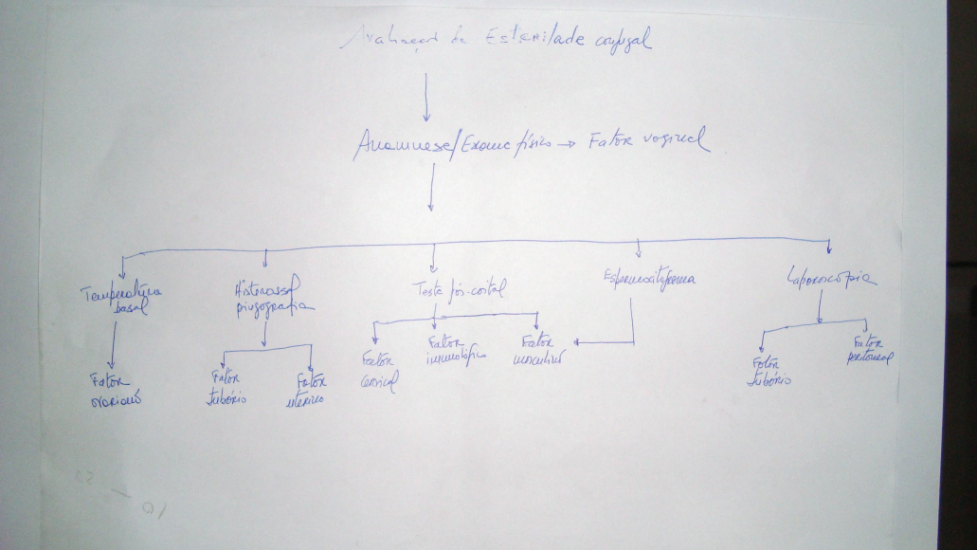 Avaliação da Esterilidade conjugal
Anamnese/Exame físico → Fator vaginal
Temperatura
basal
Histerossal
pingografia
Teste pós-coital
Espermocitograma
Laparoscópia
Fator
ovariano
Fator
tubário
Fator
uterino
Fator
cervical
Fator
imunológico
Fator
masculino
Fator
tubário
Fator
peritoneal